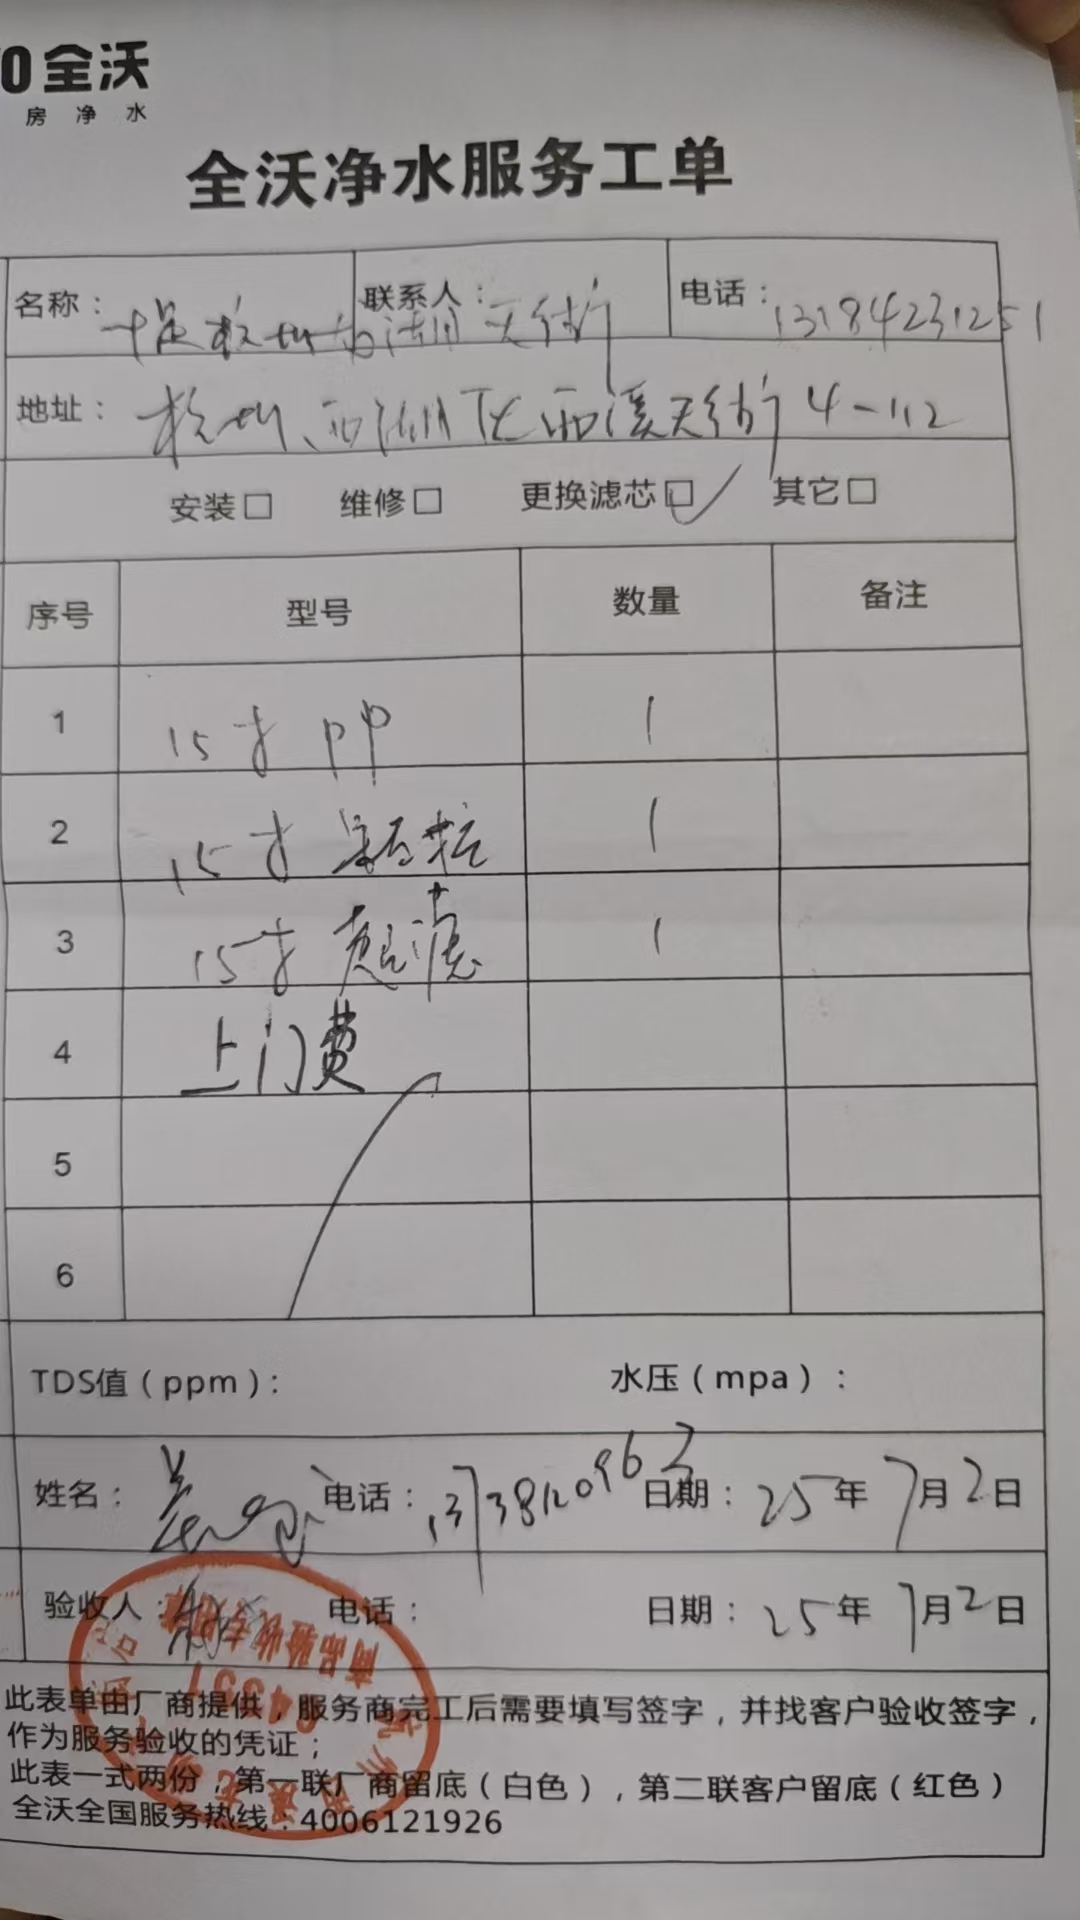 全沃
房净水
全沃净水服务工单
名称： 联系人： 电话：13184231251
地址：杭州西湖区西溪天街4-112
安装□ 维修□ 更换滤芯□✓ 其它□
序号 型号 数量 备注
1 15寸 PP 1
2 15寸 1
3 15寸 超滤 1
4 上门费
5
6
TDS值（ppm）： 水压（mpa）：
姓名： 电话： 日期：25年7月2日
验收人： 电话： 日期：25年7月2日
商品验收专用章
64351
此表单由厂商提供，服务商完工后需要填写签字，并找客户验收签字，
作为服务验收的凭证；
此表一式两份，第一联厂商留底（白色），第二联客户留底（红色）
全沃全国服务热线：4006121926